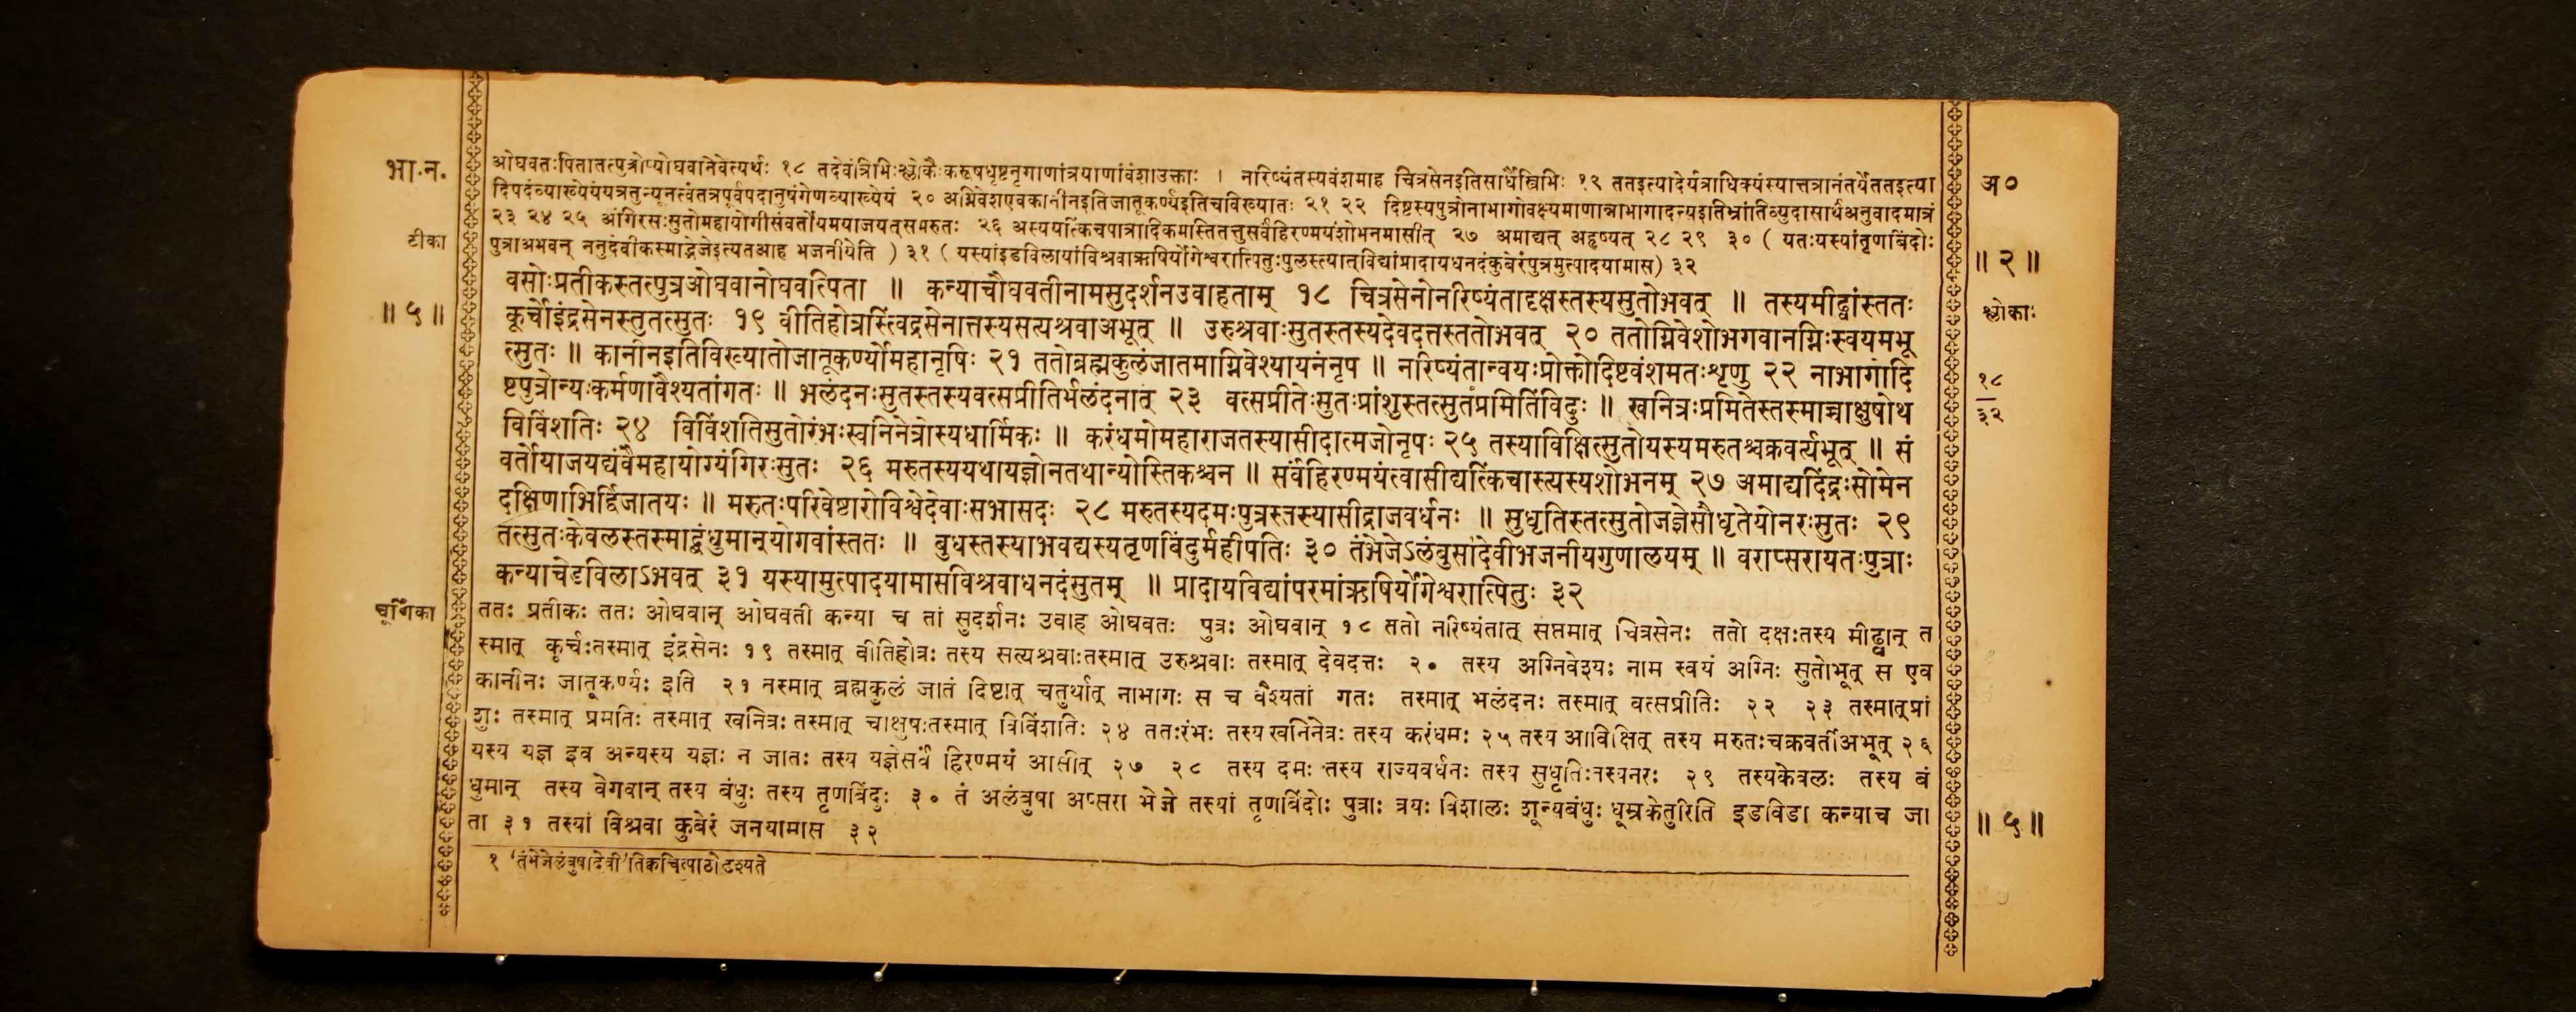 भा.न.
ओघवतःपितातत्पुत्रोप्योघवानेवेत्यर्थः १८ तदेवंत्रिभिःश्लोकैःकरूषधृष्टनृगाणांत्रयाणांवंशाउक्ताः । नरिष्यंतस्यवंशमाह चित्रसेनइतिसार्धैस्त्रिभिः १९ ततइत्यादेर्यत्राधिक्यंस्यात्तत्रानंतर्येततइत्या
अ०
दिपदंव्याख्येयंयत्रतुन्यूनत्वंतत्रपूर्वपदानुषंगेणव्याख्येयं २० अग्निवेशएवकानीनइतिजातूकर्ण्यइतिचविख्यातः २१ २२ दिष्टस्यपुत्रोनाभागोवक्ष्यमाणान्नाभागादन्यइतिभ्रांतिव्युदासार्थंअनुवादमात्रं
२३ २४ २५ अंगिरसःसुतोमहायोगीसंवर्तोयमयाजयत्समरुतः २६ अस्ययत्किंचपात्रादिकमस्तितत्तुसर्वंहिरण्मयंशोभनमासीत् २७ अमाद्यत् अहृष्यत् २८ २९ ३० ( यतःयस्यांतृणबिंदोः
टीका
पुत्राअभवन् ननुदेवीकस्माद्भेजेइत्यतआह भजनीयेति ) ३१ ( यस्यांइडविलायांविश्रवाऋषिर्योगेश्वरात्पितुःपुलस्त्यात्विद्यांप्रादायधनदंकुबेरंपुत्रमुत्पादयामास) ३२
॥ २ ॥
वसोःप्रतीकस्तत्पुत्रओघवानोघवत्पिता ॥ कन्याचौघवतीनामसुदर्शनउवाहताम् १८ चित्रसेनोनरिष्यंतादृक्षस्तस्यसुतोअवत् ॥ तस्यमीढ्वांस्ततः
॥ ५ ॥
कूर्चोइंद्रसेनस्तुतत्सुतः १९ वीतिहोत्रस्त्विंद्रसेनात्तस्यसत्यश्रवाअभूत् ॥ उरुश्रवाःसुतस्तस्यदेवदत्तस्ततोअवत् २० ततोग्निवेशोभगवानग्निःस्वयमभू
श्लोकाः
त्सुतः ॥ कानीनइतिविख्यातोजातूकर्ण्योमहानृषिः २१ ततोब्रह्मकुलंजातमाग्निवेश्यायनंनृप ॥ नरिष्यंतान्वयःप्रोक्तोदिष्टवंशमतःशृणु २२ नाभागोदि
१८
ष्टपुत्रोन्यःकर्मणावैश्यतांगतः ॥ भलंदनःसुतस्तस्यवत्सप्रीतिर्भलंदनात् २३ वत्सप्रीतेःसुतःप्रांशुस्तत्सुतंप्रमितिंविदुः ॥ खनित्रःप्रमितेस्तस्माच्चाक्षुषोथ
३२
विविंशतिः २४ विविंशतिसुतोरंभःखनिनेत्रोस्यधार्मिकः ॥ करंधमोमहाराजतस्यासीदात्मजोनृपः २५ तस्याविक्षित्सुतोयस्यमरुतश्चक्रवर्त्यभूत् ॥ सं
वर्तोयाजयद्यंवैमहायोग्यंगिरःसुतः २६ मरुतस्ययथायज्ञोनतथान्योस्तिकश्चन ॥ सर्वंहिरण्मयंत्वासीद्यत्किंचास्त्यस्यशोभनम् २७ अमाद्यदिंद्रःसोमेन
दक्षिणाभिर्द्विजातयः ॥ मरुतःपरिवेष्टारोविश्वेदेवाःसभासदः २८ मरुतस्यदमःपुत्रस्तस्यासीद्राजवर्धनः ॥ सुधृतिस्तत्सुतोजज्ञेसौधृतेयोनरःसुतः २९
तत्सुतःकेवलस्तस्माद्बंधुमान्योगवांस्ततः ॥ बुधस्तस्याभवद्यस्यतृणबिंदुर्महीपतिः ३० तंभेजेऽलंबुसादेवीभजनीयगुणालयम् ॥ वराप्सरायतःपुत्राः
कन्याचेडविलाऽभवत् ३१ यस्यामुत्पादयामासविश्रवाधनदंसुतम् ॥ प्रादायविद्यांपरमांऋषिर्योगेश्वरात्पितुः ३२
चूर्णिका
ततः प्रतीकः ततः ओघवान् ओघवती कन्या च तां सुदर्शनः उवाह ओघवतः पुत्रः ओघवान् १८ ततो नरिष्यंतात् सप्तमात् चित्रसेनः ततो दक्षःतस्य मीढ्वान् त
स्मात् कूर्चःतस्मात् इंद्रसेनः १९ तस्मात् वीतिहोत्रः तस्य सत्यश्रवाःतस्मात् उरुश्रवाः तस्मात् देवदत्तः २० तस्य अग्निवेश्यः नाम स्वयं अग्निः सुतोभूत् स एव
कानीनः जातूकर्ण्यः इति २१ तस्मात् ब्रह्मकुलं जातं दिष्टात् चतुर्थात् नाभागः स च वैश्यतां गतः तस्मात् भलंदनः तस्मात् वत्सप्रीतिः २२ २३ तस्मात्प्रां
शुः तस्मात् प्रमतिः तस्मात् खनित्रः तस्मात् चाक्षुषःतस्मात् विविंशतिः २४ ततःरंभः तस्य खनिनेत्रः तस्य करंधमः २५ तस्य आविक्षित् तस्य मरुतःचक्रवर्तीअभूत् २६
यस्य यज्ञ इव अन्यस्य यज्ञः न जातः तस्य यज्ञेसर्वं हिरण्मयं आसीत् २७ २८ तस्य दमः तस्य राज्यवर्धनः तस्य सुधृतिःतस्यनरः २९ तस्यकेवलः तस्य बं
धुमान् तस्य वेगवान् तस्य बंधुः तस्य तृणबिंदुः ३० तं अलंबुषा अप्सरा भेजे तस्यां तृणबिंदोः पुत्राः त्रयः विशालः शून्यबंधुः धूम्रकेतुरिति इडविडा कन्याच जा
ता ३१ तस्यां विश्रवा कुबेरं जनयामास ३२
॥ ५ ॥
१ ‘तंभेजेलंबुषादेवी’तिक्वचित्पाठोदृश्यते